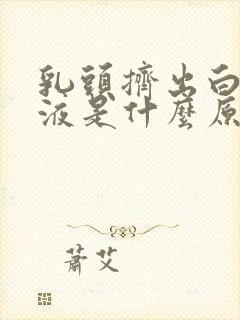 乳頭擠出白
液是什麼原
蕭艾